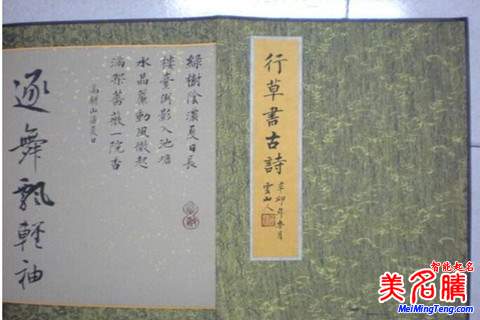 行草書古詩
辛卯年冬月
雲山人
綠樹陰濃夏日長
樓臺倒影入池塘
水晶簾動風微起
滿架薔薇一院香
高駢山亭夏日
逐舞飄輕袖
智能起名
美名騰
MeiMingTeng.com